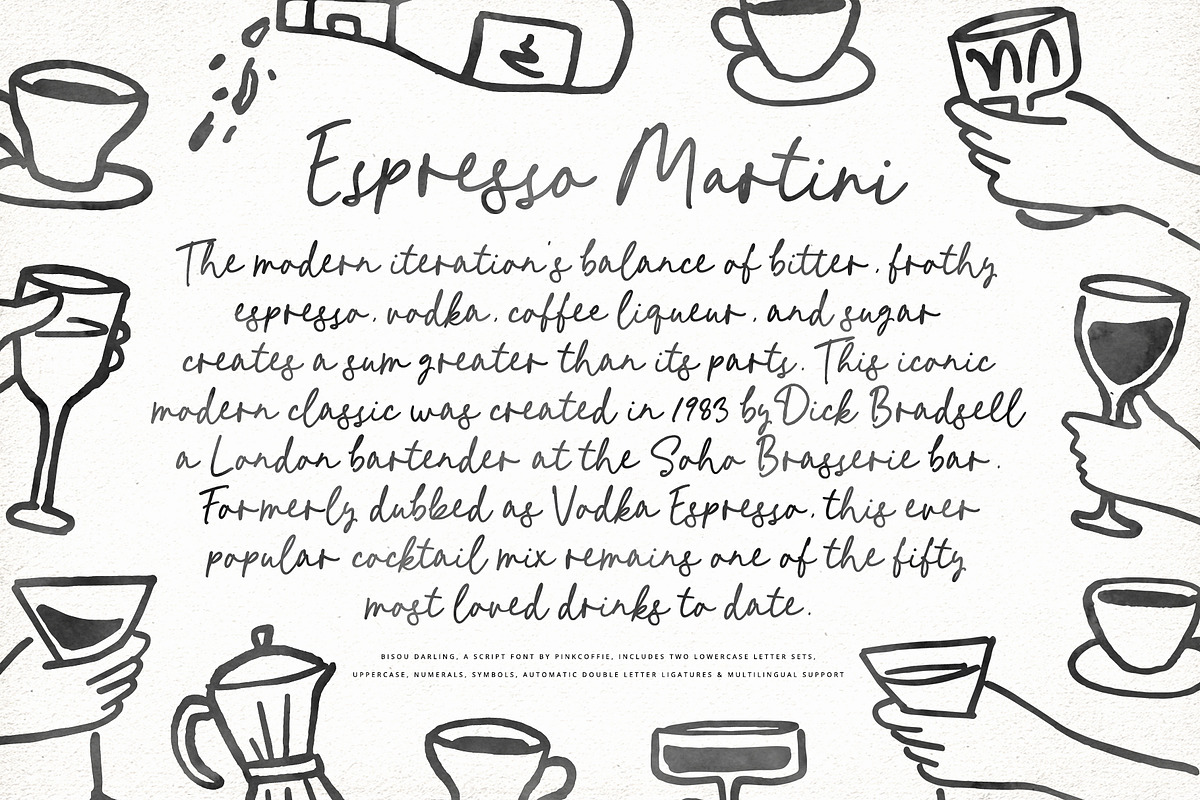 Espresso Martini
The modern iteration's balance of bitter, frothy
espresso, vodka, coffee liqueur, and sugar
creates a sum greater than its parts. This iconic
modern classic was created in 1983 by Dick Bradsell
a London bartender at the Soho Brasserie bar.
Formerly dubbed as Vodka Espresso, this ever
popular cocktail mix remains one of the fifty
most loved drinks to date.
BISOU DARLING, A SCRIPT FONT BY PINKCOFFIE, INCLUDES TWO LOWERCASE LETTER SETS,
UPPERCASE, NUMERALS, SYMBOLS, AUTOMATIC DOUBLE LETTER LIGATURES & MULTILINGUAL SUPPORT